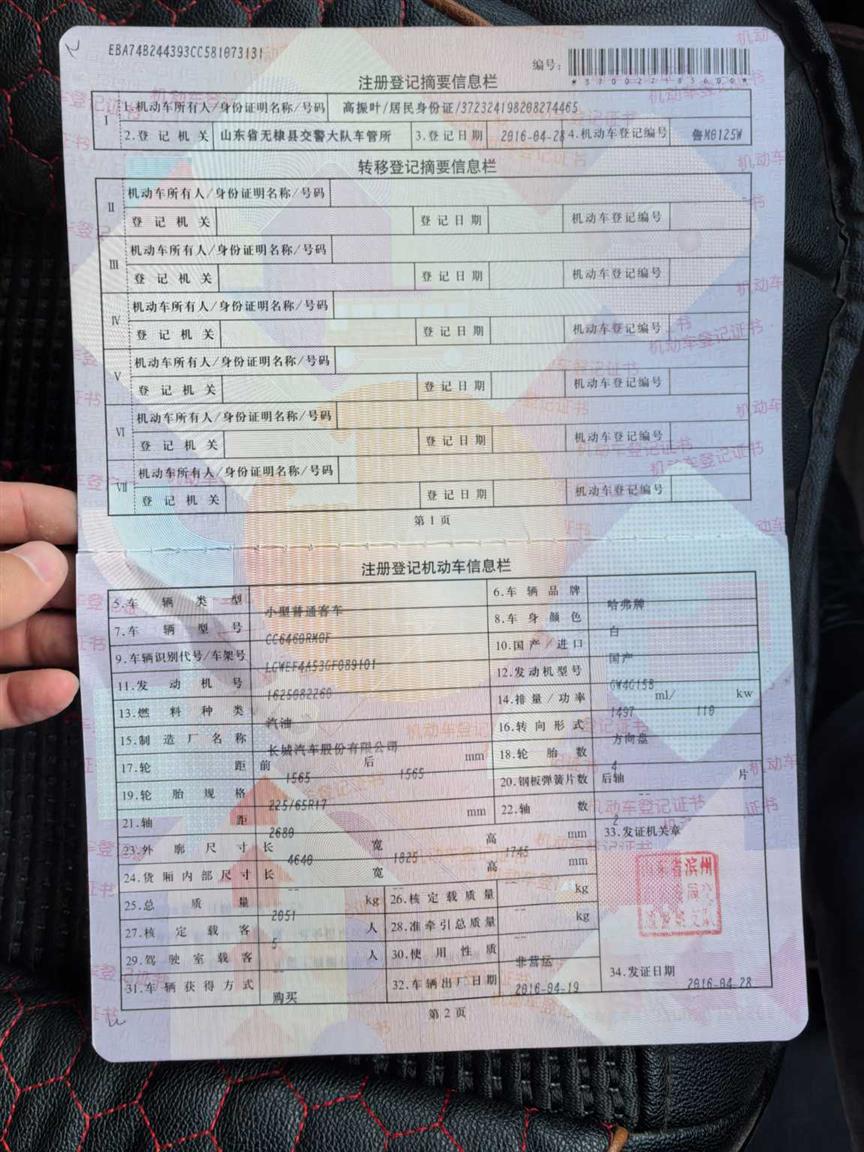 EBA74B244393CC581073131
编号:
注册登记摘要信息栏
I 1.机动车所有人/身份证明名称/号码 高振叶/居民身份证/372324198208274465
2.登记机关 山东省无棣县交警大队车管所 3.登记日期 2016-04-28 4.机动车登记编号 鲁M0125W
转移登记摘要信息栏
II 机动车所有人/身份证明名称/号码
登记机关 登记日期 机动车登记编号
III 机动车所有人/身份证明名称/号码
登记机关 登记日期 机动车登记编号
IV 机动车所有人/身份证明名称/号码
登记机关 登记日期 机动车登记编号
V 机动车所有人/身份证明名称/号码
登记机关 登记日期 机动车登记编号
VI 机动车所有人/身份证明名称/号码
登记机关 登记日期 机动车登记编号
VII 机动车所有人/身份证明名称/号码
登记机关 登记日期 机动车登记编号
第1页
注册登记机动车信息栏
5.车辆类型 小型普通客车 6.车辆品牌 哈弗牌
7.车辆型号 CC6460RM0F 8.车身颜色 白
9.车辆识别代号/车架号 LGWEF4A53GF089101 10.国产/进口 国产
11.发动机号 1625082260 12.发动机型号 GW4G15B
13.燃料种类 汽油 14.排量/功率 1497 ml/ 110 kw
15.制造厂名称 长城汽车股份有限公司 16.转向形式 方向盘
17.轮距 前 1565 后 1565 mm 18.轮胎数 4
19.轮胎规格 225/65R17 20.钢板弹簧片数 后轴 -- 片
21.轴距 2680 mm 22.轴数 2
23.外廓尺寸 长 4640 宽 1825 高 1745 mm 33.发证机关章
24.货厢内部尺寸 长 -- 宽 -- 高 -- mm
25.总质量 2051 kg 26.核定载质量 -- kg
27.核定载客 5 人 28.准牵引总质量 -- kg
29.驾驶室载客 -- 人 30.使用性质 非营运
31.车辆获得方式 购买 32.车辆出厂日期 2016-04-19 34.发证日期 2016-04-28
第2页